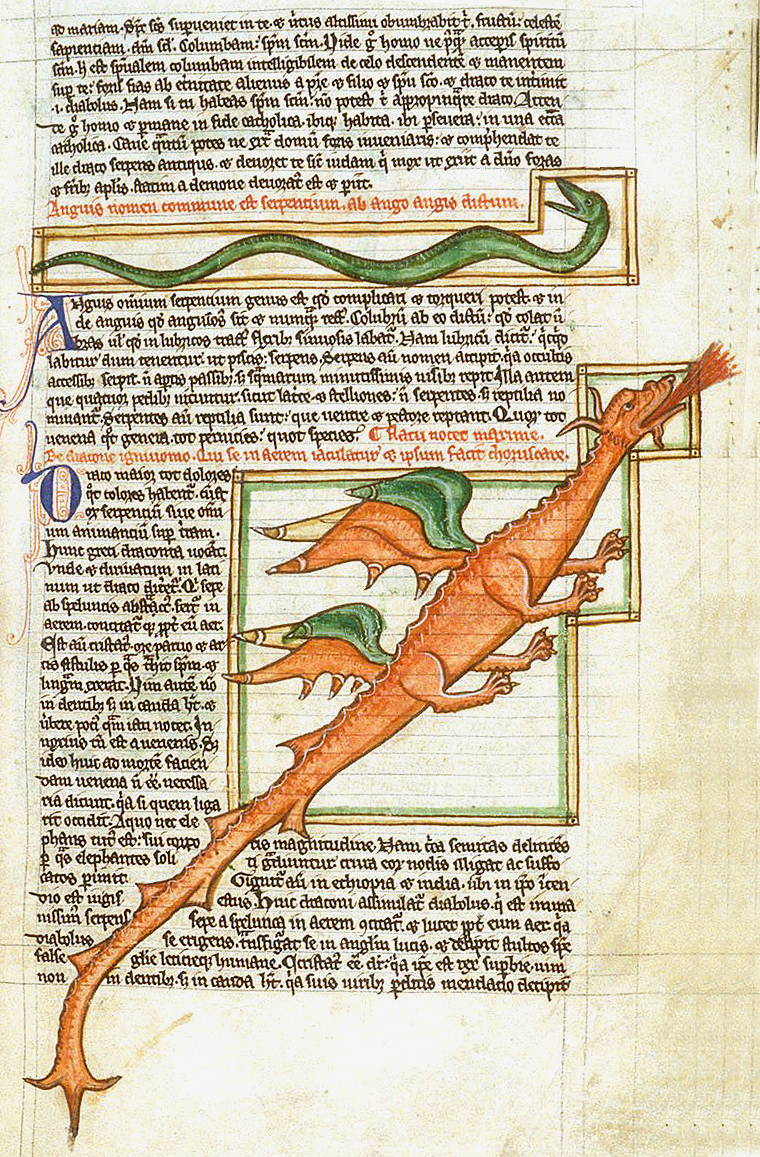 ad mariam. Spc scs superveniet in te. & virtus altissimi obumbrabit t. scilicet celeste
sapientiam. dni sci. Columbam. spm scm. Vide g homo ne pqa acceperis spiritu
scm. h est spualem columbam intelligibilem de celo descendente & manentem
sup te: foris fias ab eternitate alienus a pre & filio & spu sco. & draco te intimit
.i. diabolus. Nam si tu habeas spm scm. no potest t appropinqre draco. Atten
te g homo & pmane in fide catholica. ibiq habita. ibi psevera. in una ecca
catholica. Cave qntu potes ne extra domu foris inveniaris: & comphendat te
ille draco serpens antiquus. & devoret te sic iudam q mox ut exiit a dno foras
& frib aplis. statim a demone devorat est & piit.
Anguis nomen commune est serpentium. ab ango angis dictum.
Anguis omnium serpentium genus est qd complicari & torqueri potest. & in
de anguis qd angulos sit & nunq rect. Colubru ab eo dictu: qd colat u
bras ul qd in lubricos tract flexib sinuosis labat. Nam lubricu dicit: qcqd
labitur dum tenetur: ut piscis: serpens. Serpens au nomen accipit. qa occultis
accessib serpit. n aptis passib: s squamarum minutissimis nisib repit. Illa autem
que quatuor pedib nituntur: sicut lacte & stelliones: n serpentes. s reptilia no
minant. Serpentes au reptilia sunt: que ventre & pectore reptant. Quor tot
venena qt genera. tot pernicies: quot species. Flatu nocet maxime.
De dracone ignivomo. Qui se in aerem iaculatur & ipsum facit choruscare.
Draco maior tot dolores
qt colores habent. cuct
or serpentiu sive omi
um animantiu sup tram.
Hunc greci draconta vocat.
Unde & dirivatum in lati
num ut draco diceret. Q sepe
ab speluncis abstract. fert in
aerem. concitat q ppt eu aer.
Est au cristat. ore parvo & ar
tis fistulis p qs trahit spm. &
lingua exerat. Vim autem no
in dentib s in cauda ht. &
ubere poti qm ictu nocet. In
noxius tn est a venenis. Sz
ideo huic ad morte facien
dam venena n ee. necessa
ria dicunt. qa si quem liga
rit occidit. A quo nec ele
phans tut est: sui corpo
ris magnitudine. Nam cca semitas delitesces
p qs elephantes soli
ti gradiuntur crura eor nodis illigat ac suffo
catos perimit.
Gignit au in ethiopia & india. ubi in ipo icen
dio est iugis estus. Huic draconi assimilat diabolus. q est imma
nissim serpens sepe a spelunca in aerem concitat. & lucet ppt eum aer. qa
diabolus se erigens. transfigurat se in anglm lucis. & decipit stultos spe
false glie leticieq humane. Cristat ee dr: qa ipe est rex supbie. vim
non in dentib. s in cauda ht. qa suis virib pditis mendacio decipit